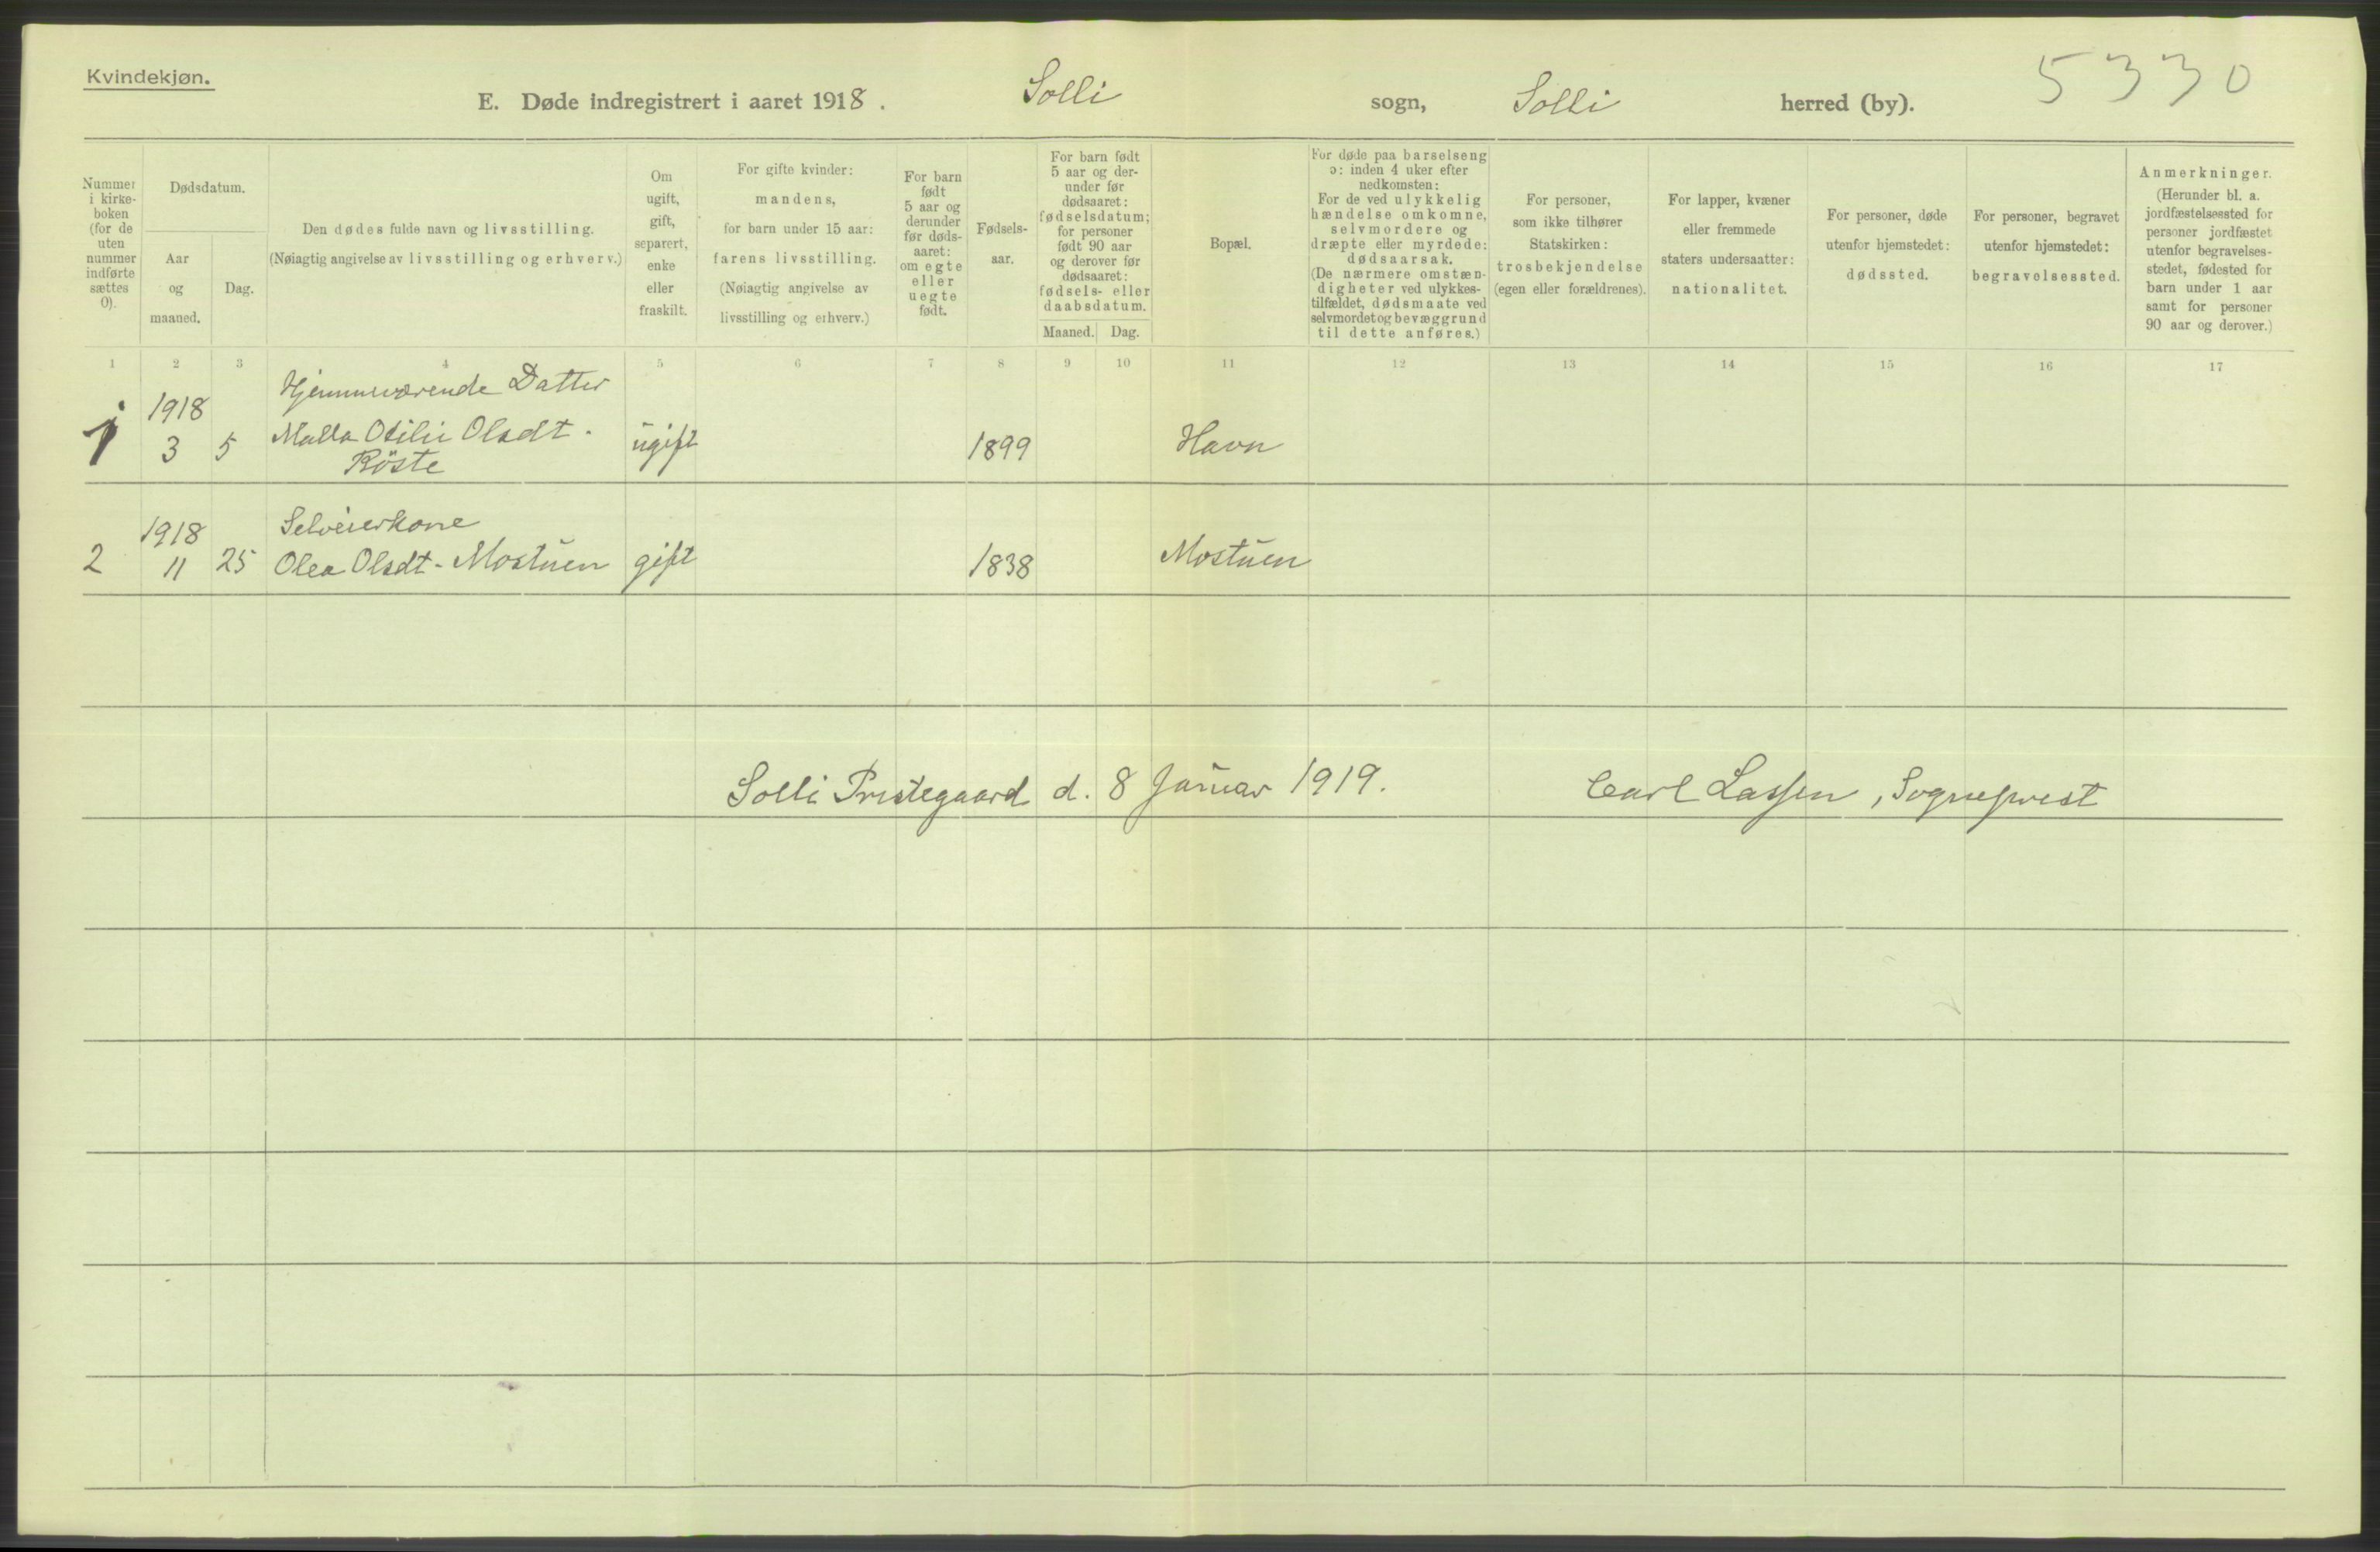 Kvindekjøn.
5330
E. Døde indregistrert i aaret 1918. Solli sogn, Solli herred (by).
Nummer
i kirke-
boken
(for de
uten
nummer
indførte
sættes
0).
Dødsdatum.
Aar
og
maaned.
Dag.
Den dødes fulde navn og livsstilling.
(Nøiagtig angivelse av livsstilling og erhverv.)
Om
ugift,
gift,
separert,
enke
eller
fraskilt.
For gifte kvinder:
mandens,
for barn under 15 aar:
farens livsstilling.
(Nøiagtig angivelse av
livsstilling og erhverv.)
For barn
født
5 aar og
derunder
før døds-
aaret:
om egte
eller
uegte
født.
Fødsels-
aar.
For barn født
5 aar og der-
under før
dødsaaret:
fødselsdatum;
for personer
født 90 aar
og derover før
dødsaaret:
fødsels- eller
daabsdatum.
Maaned. Dag.
Bopæl.
For døde paa barselseng
ɔ: inden 4 uker efter
nedkomsten:
For de ved ulykkelig
hændelse omkomne,
selvmordere og
dræpte eller myrdede:
dødsaarsak.
(De nærmere omstæn-
digheter ved ulykkes-
tilfældet, dødsmaate ved
selvmordet og bevæggrund
til dette anføres.)
For personer,
som ikke tilhører
Statskirken:
trosbekjendelse
(egen eller forældrenes).
For lapper, kvæner
eller fremmede
staters undersaatter:
nationalitet.
For personer, døde
utenfor hjemstedet:
dødssted.
For personer, begravet
utenfor hjemstedet:
begravelsessted.
Anmerkninger.
(Herunder bl. a.
jordfæstelsessted for
personer jordfæstet
utenfor begravelses-
stedet, fødested for
barn under 1 aar
samt for personer
90 aar og derover.)
1 2 3 4 5 6 7 8 9 10 11 12 13 14 15 16 17
1918 Hjemmeværende Datter
1 3 5 Malla Otilie Olsdt. ugift 1899 Havn
Röste
1918 Selveierkone
2 11 25 Olea Olsdt. Mostuen gift 1838 Mostuen
Solli Prestegaard d. 8 Januar 1919. Carl Lassen, Sogneprest